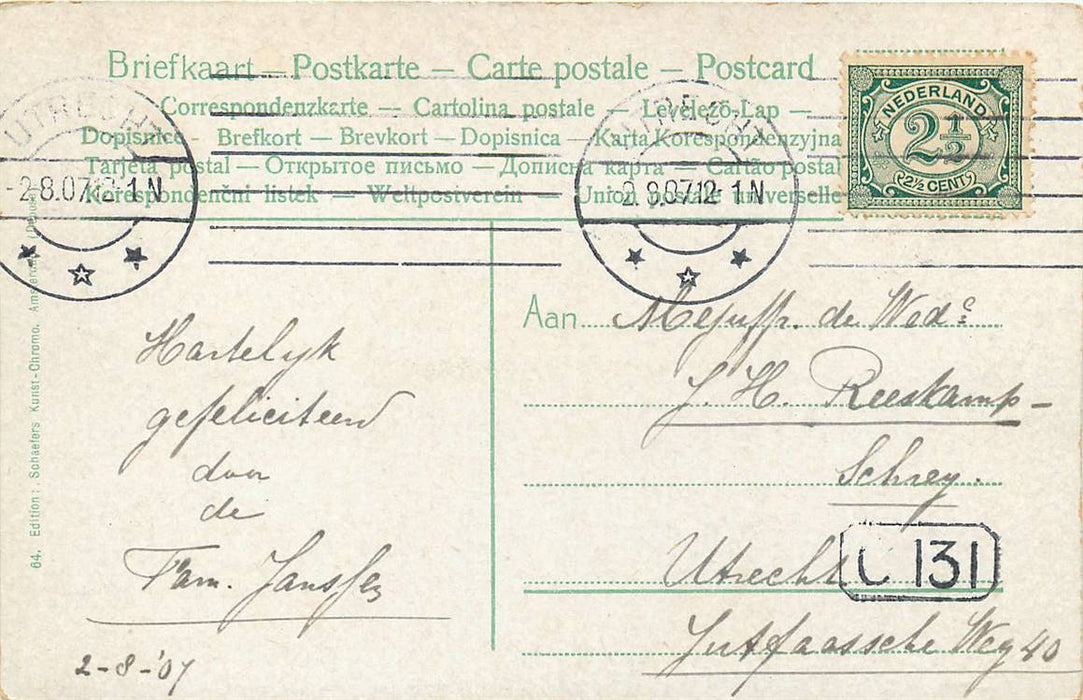 Briefkaart — Postkarte — Carte postale — Postcard
Correspondenzkarte — Cartolina postale — Levelező-Lap —
Dopisnice — Brefkort — Brevkort — Dopisnica — Karta Korespondenzyjna
Tarjeta postal — Открытое письмо — Дописна карта — Cartão postal
Korespondenční listek — Weltpostverein — Union postale universelle
NEDERLAND
2 1/2
2½ CENT
UTRECHT
-2.8.07.12-1N
-2.8.07.12-1N
64. Edition: Schaefers Kunst-Chromo. Amsterdam
Hartelyk
gefeliciteerd
door
de
Fam. Janssen
2-8-'07
Aan Mejuffr. de Wede
J. H. Reeskamp-
Schrey.
Utrecht
C 131
Jutfaassche Weg 40